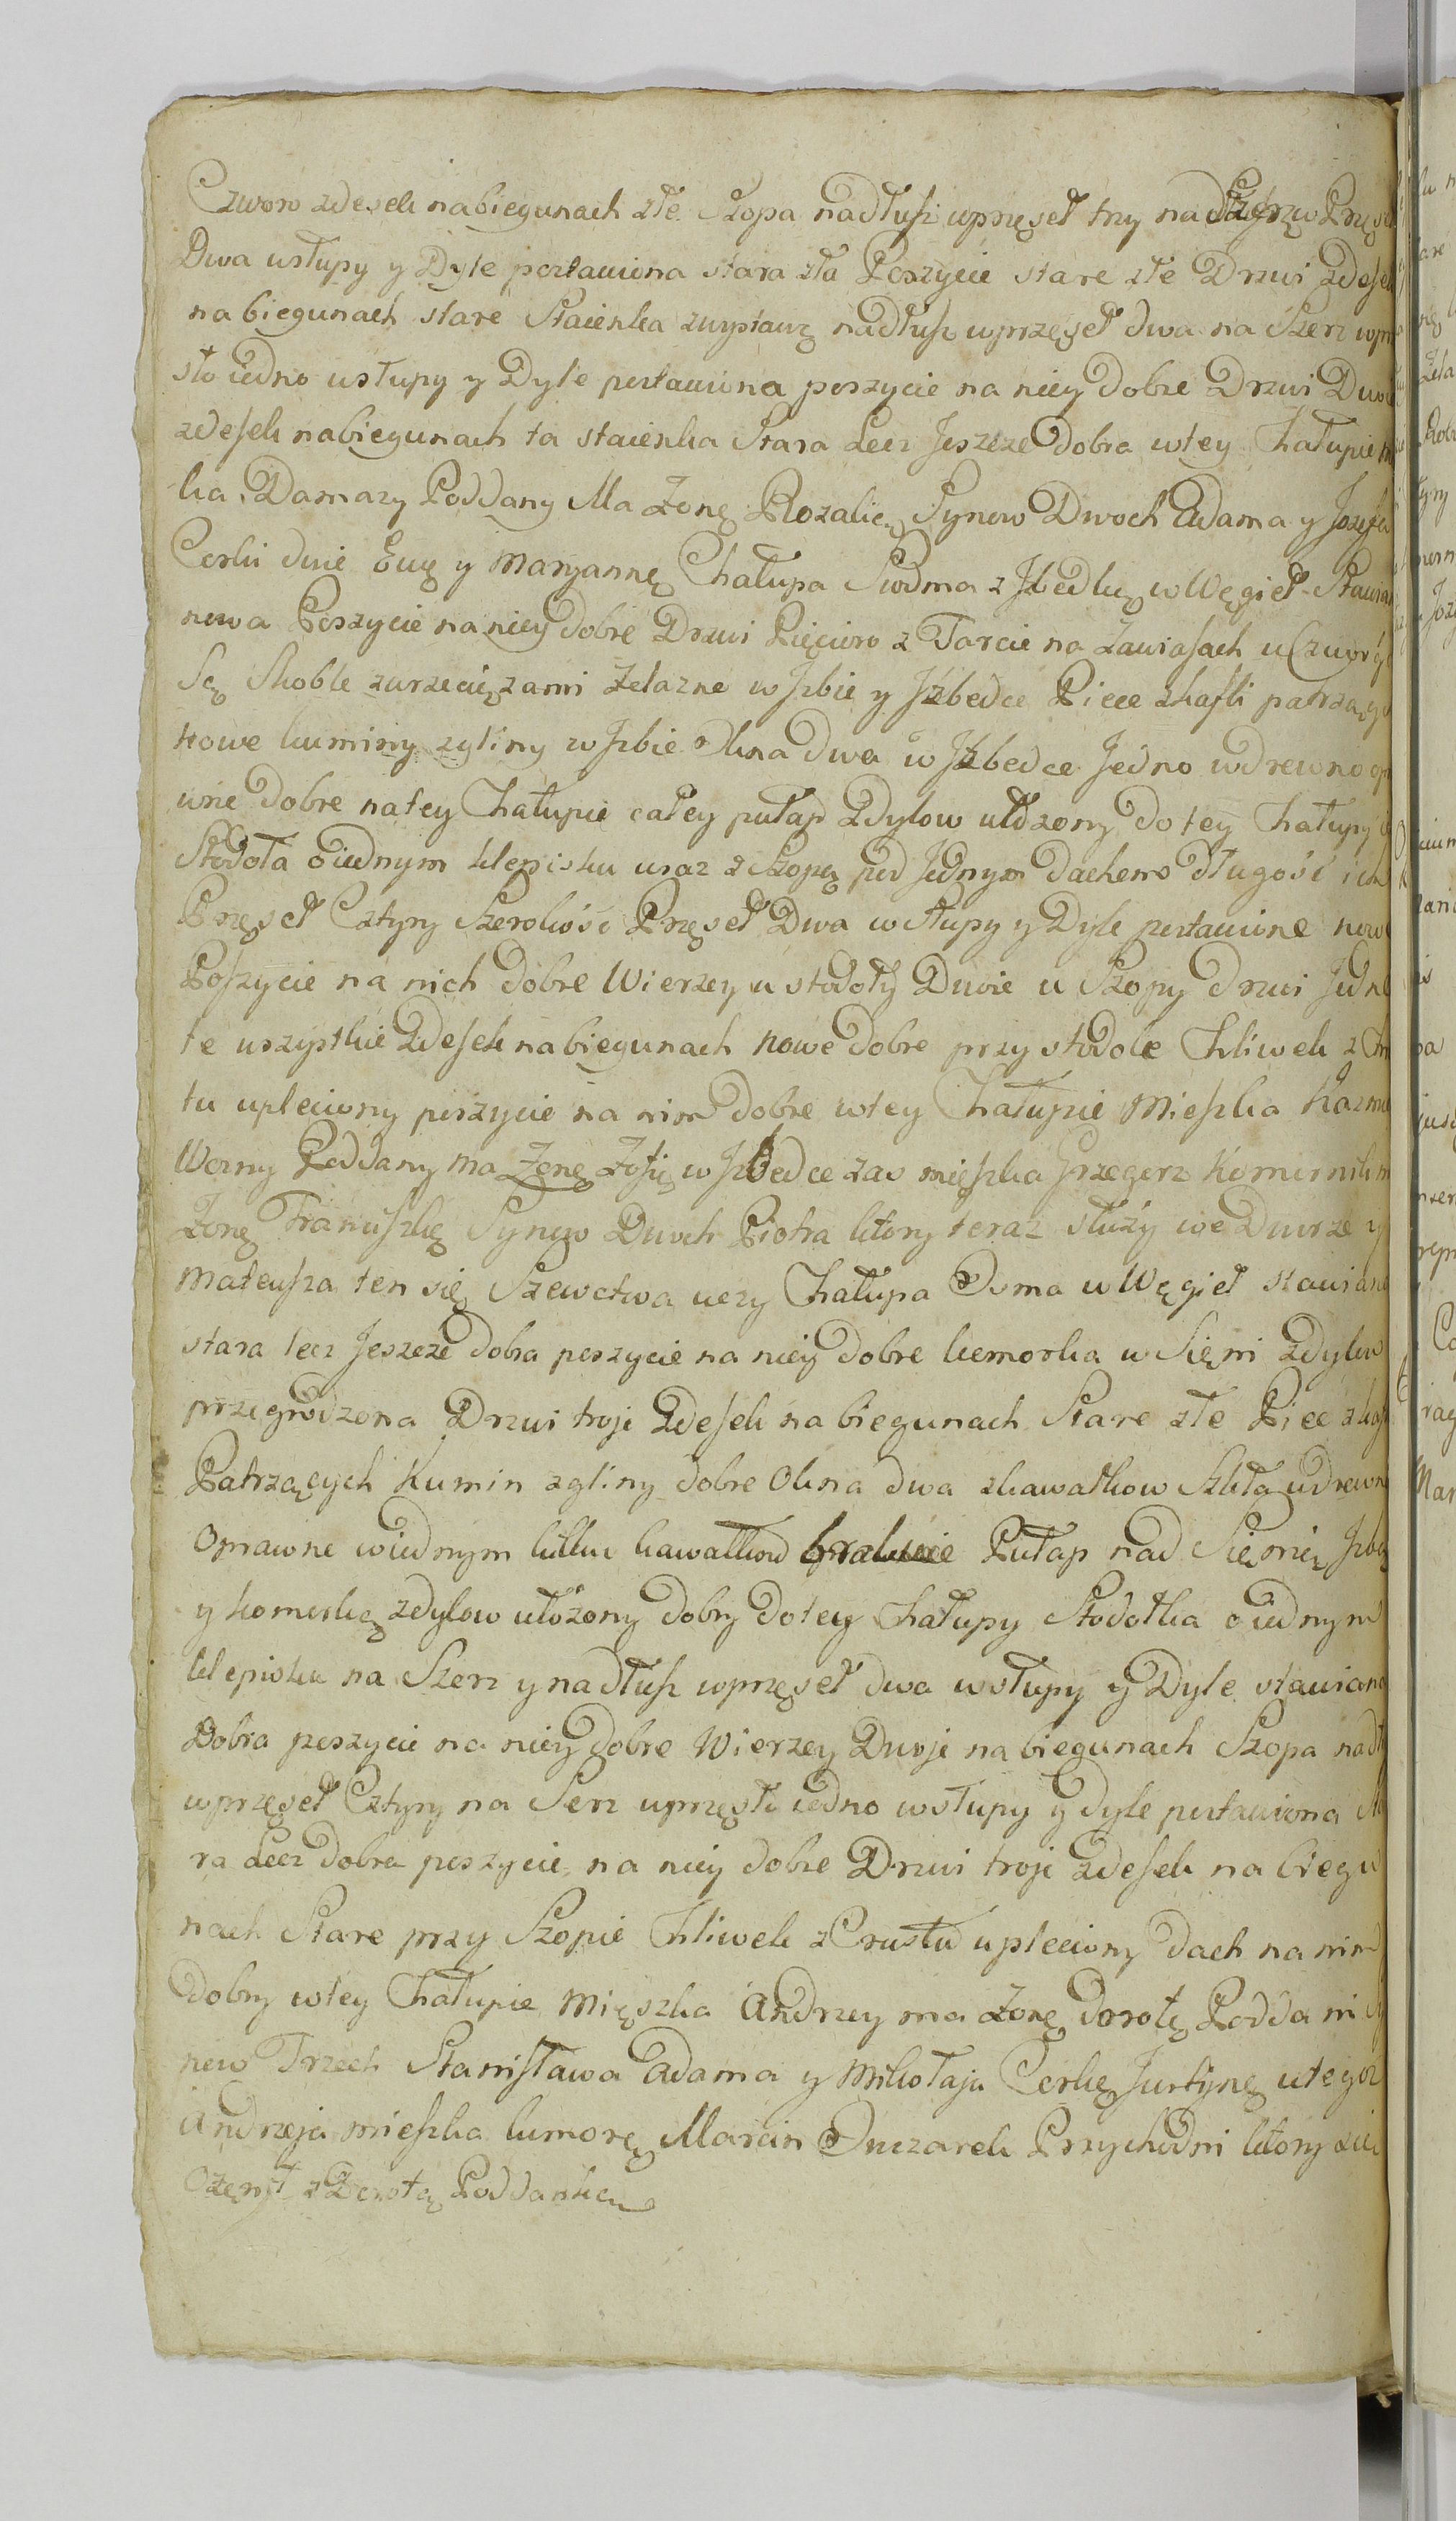 Czworo zdesek nabiegunach złe Szopa nadłusz wprzęseł trzy na Szerz w Przęs
Dwa wsłupy y Dyle postawiona stara zła Poszycie stare złe Drzwi zdesek
na biegunach stare Staienka zwystawą nadłusz wprzęseł dwa na Szerz wprzę
sło iedno wsłupy y Dyle postawiona poszycie na niey dobre Drzwi Dwo
zdesek nabiegunach ta staienka Stara Lecz Jeszcze dobra wtey Chałupie m
ka Damazy Poddany Ma Zonę Rozalię Synow Dwoch Adama y Jozefa
Corki dwie Ewę y Maryannę Chałupa Siodma z Jzbedką w Węgieł Stawian
nowa Poszycie na niey dobre Drzwi Pięcioro z Tarcic na Zawiasach u Czworg
Są Skoble zwrzeciązami Zelazne w Jzbie y Jzbedce Piece zkafli patrzący
nowe kuminy zgliny w Jzbie Okna dwa w Jzbedce Jedno wdrewno op
wne dobre natey Chałupie całey pułap Zdylow ułozony do tey Chałupy
Stodoła o iednym klepisku wraz z Szopą pod Jednym Dachem Długość ich
Przęseł Cztyry Szerokość Przęseł Dwa w słupy y Dyle postawione nowe
Poszycie na nich dobre Wierzey u stodoły Dwie u Szopy drzwi Jedne
te wszystkie Zdesek nabiegunach nowe dobre przy stodole Chliwek z Chr
tu upleciony poszycie na nim dobre wtey Chałupie Mieszka Kazmi
Worny Poddany ma Zonę Zofię w Jzbedce zas mieszka Grzegorz Komornik m
Zonę Franciszkę Synow Dwoch Piotra ktory teraz słuzy we Dworze y
Mateusza ten się Szewctwa uczy Chałupa Osma w Węgieł stawiana
stara lecz Jeszcze dobra poszycie na niey dobre komorka w Sięni zdylow
przegrodzona Drzwi troje Zdesek na biegunach Stare złe Piec zkafl
Patrzących Kumin zgliny dobre Okna dwa zkawałkow Szkła wdrewno
Oprawne wiednym kilku kawałkow brakuie Pułap nad Sięnią Jzbą
y komorką zdylow ułozony dobry do tey Chałupy Stodołka o iednym
klepisku na Szerz y nadłusz wprzęseł dwa wsłupy y Dyle stawiana
Dobra poszycie na niey dobre Wierzey Dwoje na biegunach Szopa nadł
wprzęseł Cztyry na Serz wprzęsło iedno wsłupy y dyle postawiona Sta
ra Lecz dobra poszycie na niey dobre Drzwi troje zdesek na biegu
nach Stare przy Szopie Chliwek z Chrustu upleciony dach na nim
dobry wtey Chałupie Mięszka Andrzey ma Zonę dorotę Poddani Sy
now Trzech Stanisława Adama y Mikołaja Corkę Justynę u tegoz
Andrzeja mieszka kumorą Marcin Owczarek Przychodni ktory się
Ozenił z Dorotą Poddanką